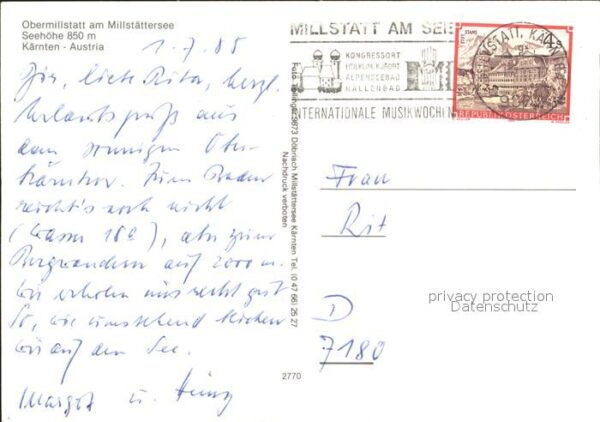 Obermillstatt am Millstättersee
Seehöhe 850 m
Kärnten - Austria
1.7.85
liebe Rita, herzl.
Urlaubsgrüße aus
dem sonnigen Ober-
kärnten. Zum Baden
reicht's noch nicht
(Wasser 18°), aber zum
Bergwandern auf 2000 m.
Wir erholen uns recht gut
So, wie umsehend blicken
wir auf den See.
Margot u. Heinz
MILLSTATT AM SEE
KONGRESSORT
HÖHENLUFTKURORT
ALPENSEEBAD
HALLENBAD
INTERNATIONALE MUSIKWOCHEN
STIFT STAMS
REPUBLIK ÖSTERREICH
MILLSTATT, KÄRNTEN
9872
9873 Döbriach Millstättersee Kärnten Tel. (0 47 66) 25 27
Nachdruck verboten
2770
Frau
Rit
D
7180
privacy protection
Datenschutz